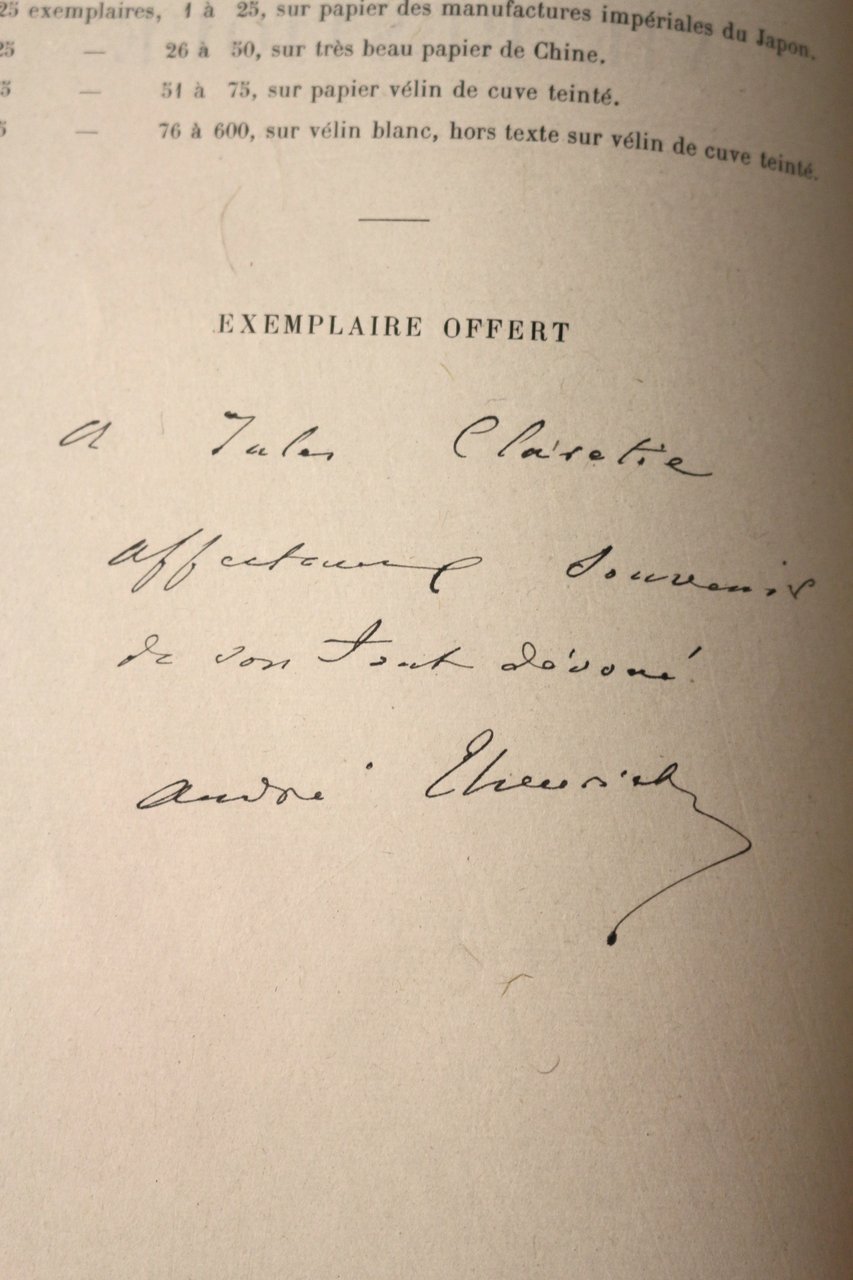 25 exemplaires, 1 à 25, sur papier des manufactures impériales du Japon.
25 — 26 à 50, sur très beau papier de Chine.
5 — 51 à 75, sur papier vélin de cuve teinté.
5 — 76 à 600, sur vélin blanc, hors texte sur vélin de cuve teinté.
EXEMPLAIRE OFFERT
A Jules Claretie
affectueux souvenir
de son tout dévoué
André Theuriet